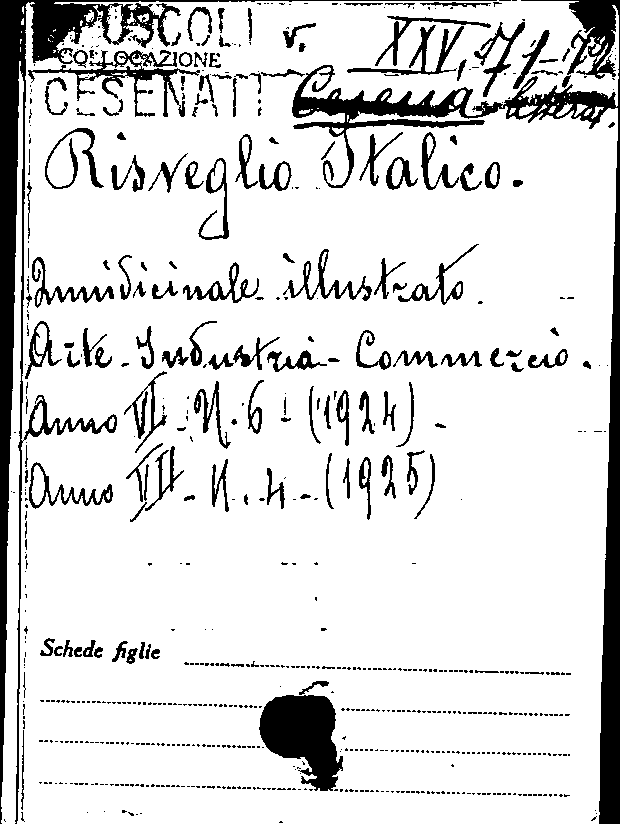 OPUSCOLI v. XXV, 71-72
COLLOCAZIONE
CESENATI Cesena letterat.
Risveglio Italico.
Quindicinale illustrato.
Arte - Industria - Commercio.
Anno VI - N. 6 - (1924) -
Anno VII - N. 4 - (1925)
Schede figlie